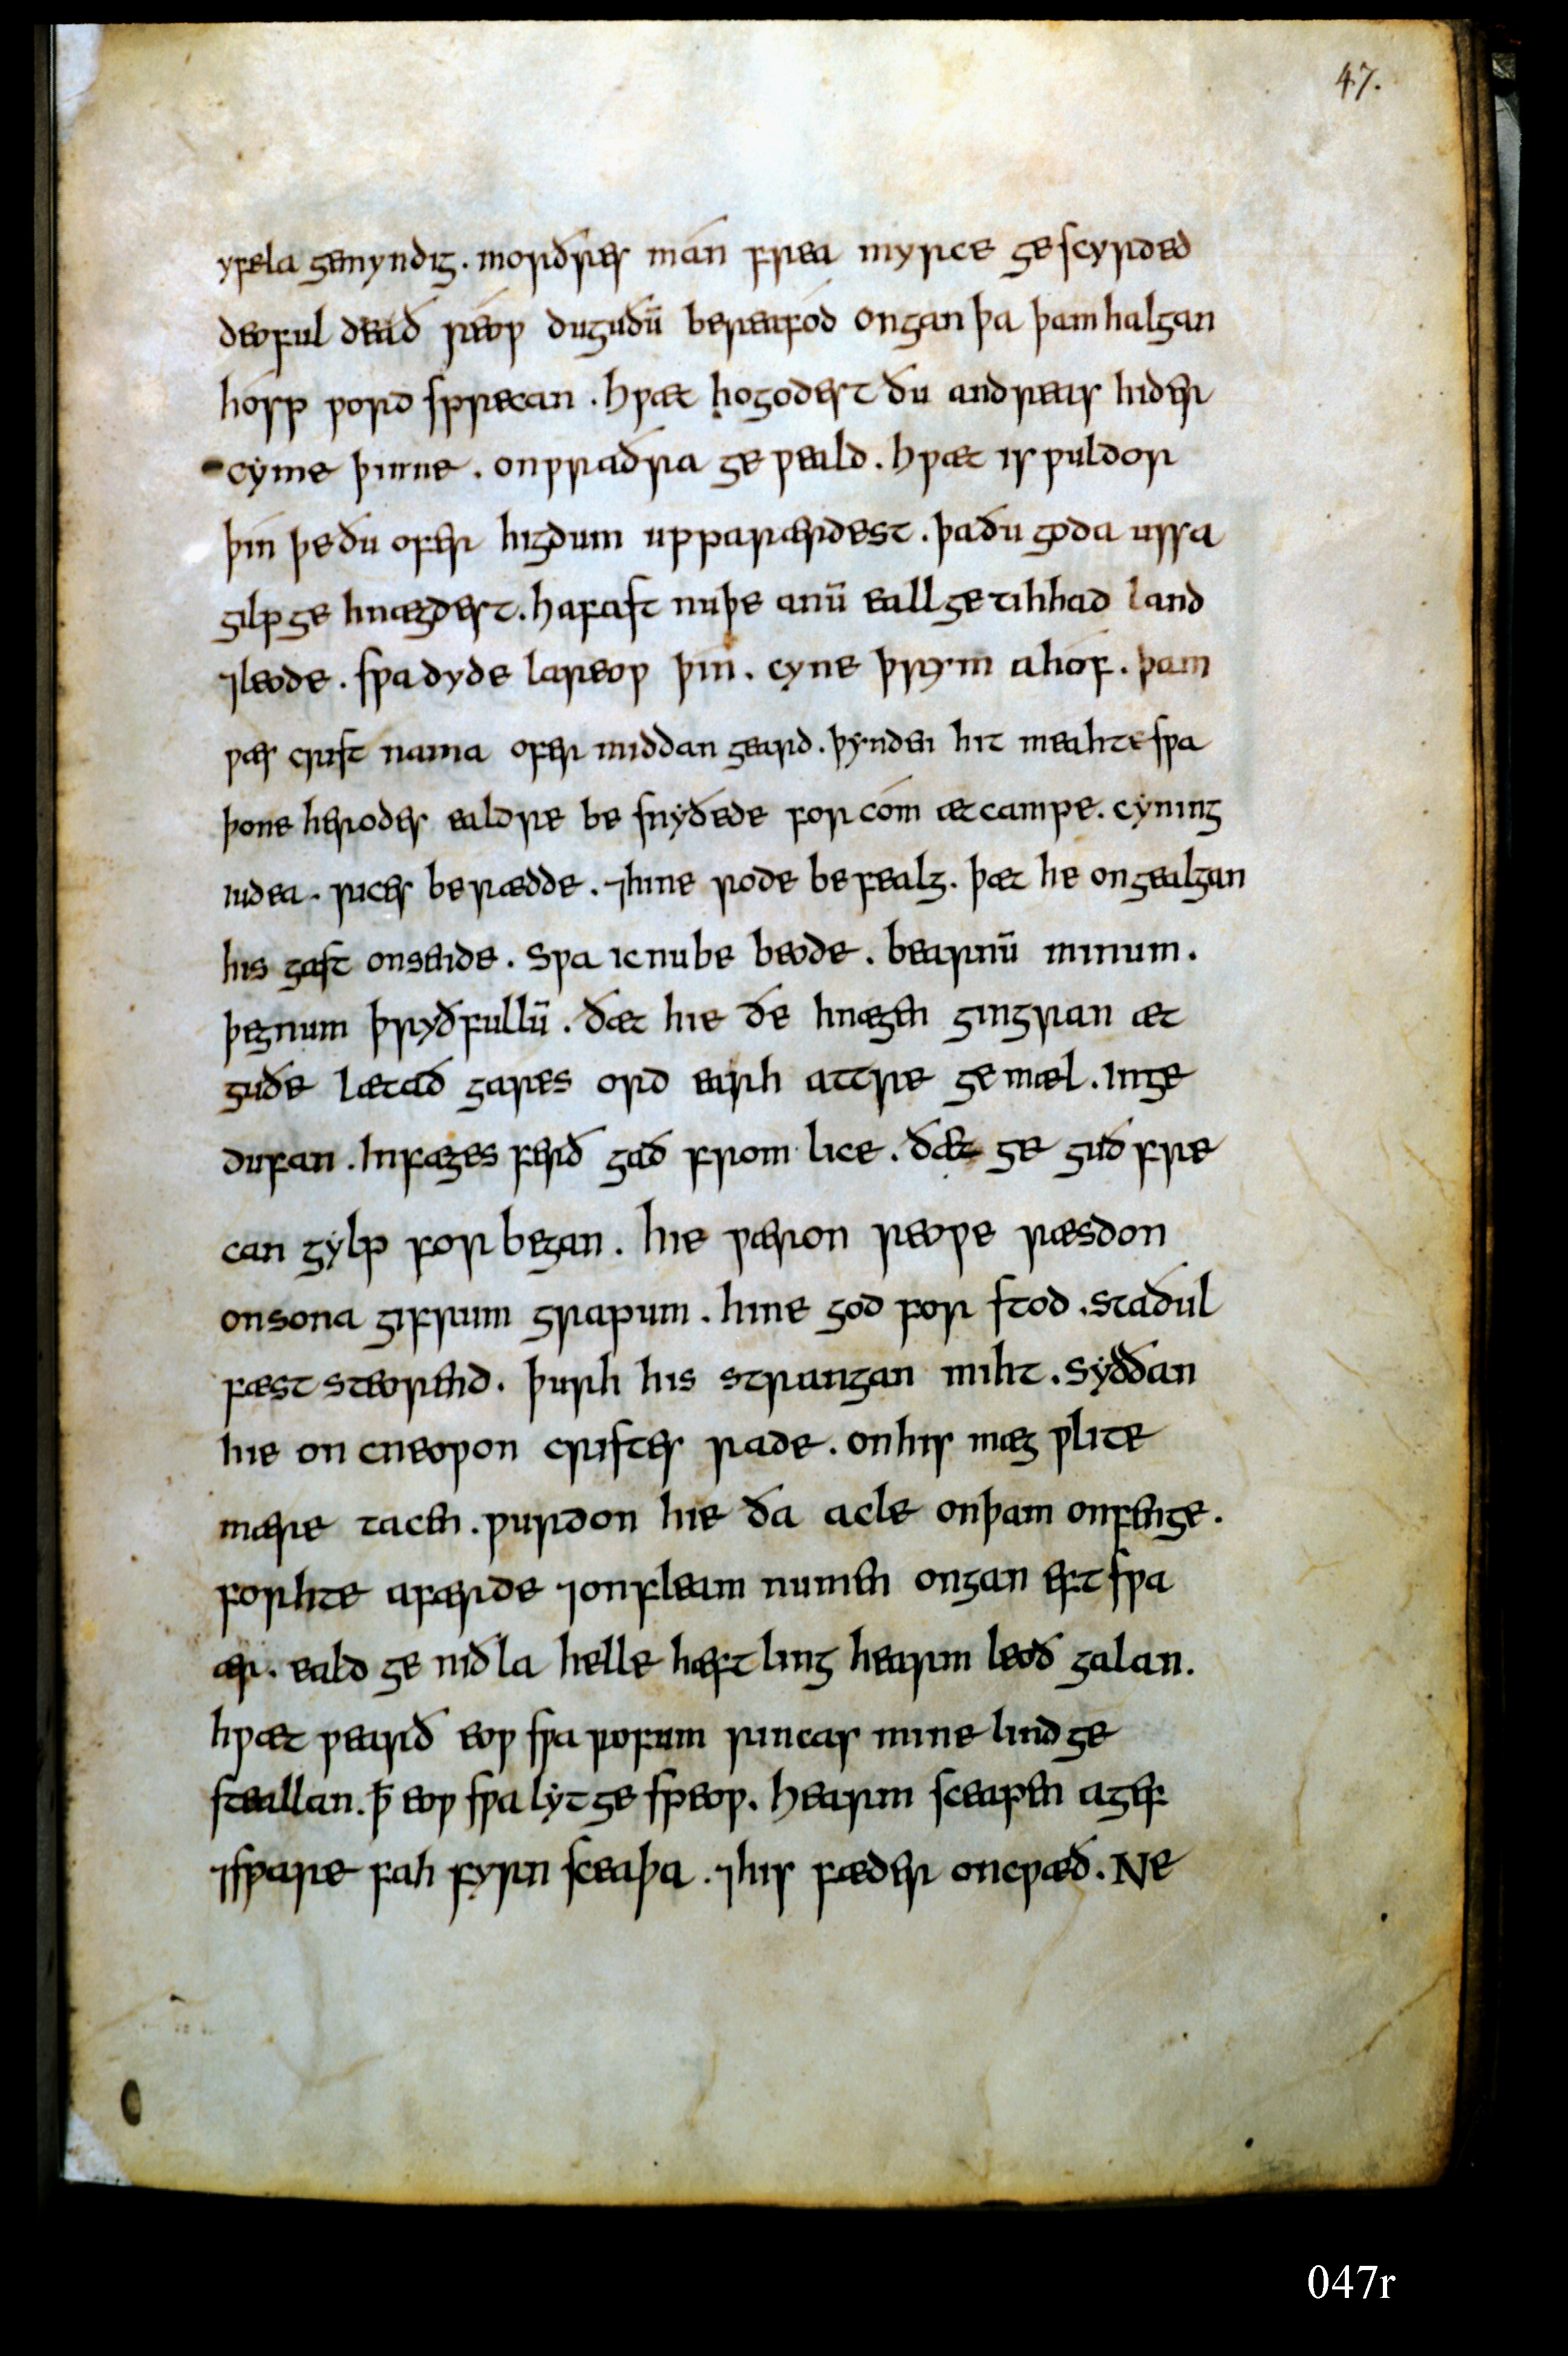 47.
yfela gemyndig. morðres mán frea myrce ge scyrded
deoful deað réoƿ duguðū bereafód ongan þa þam halgan
hósp ƿord sprecan. hƿæt hogodest ðu andreas hider
cyme þinne. onƿraðra ge ƿeald. hƿæt is ƿuldor
þin þe ðu ofer higdum upp arærdest. þa ðu goda ussa
gilp ge hnægdest. hafast nu þe anū eall getihhad land
⁊leode. sƿa dyde lareoƿ þin. cyne þrym ahóf. þam
ƿæs crist nama ofer middan geard. þynden hit meahte sƿa
þone herodes ealdre be snyðede for cóm æt campe. cyning
iudea. rices berædde. ⁊hine rode befealg. þæt he ongealgan
his gast onsende. Sƿa ic nu be beode. bearnū minum.
þegnum þryðfullū. ðæt hie ðe hnægen gingran æt
guðe lætað gares ord earh attre ge mæl. In ge
dufan. In fæges ferð gað from lice. ðæt ge guð fre
can gylp for began. hie ƿæron reoƿe ræsdon
onsona gifrum grapum. hine god for stod. staðul
fæst steorend. þurh his strangan miht. Syððan
hie on cneoƿon cristes rade. on his mæg ƿlite
mære tacen. ƿurdon hie ða acle onþam onfenge.
forhte afærde ⁊onfleam numen ongan eft sƿa
ær. eald ge niðla helle hæftling hearm leoð galan.
hƿæt ƿearð eoƿ sƿa rofum rincas mine lind ge
steallan. ꝥ eoƿ sƿa lyt ge speoƿ. hearm sceapen agef
⁊sƿare fah fyrn sceaþa. ⁊his fæder oncƿæð. Ne
047r